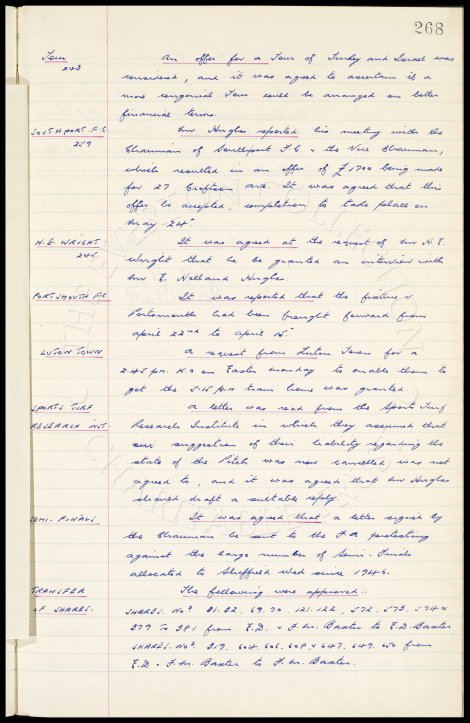 268
Tour An offer for a Tour of Turkey and Israel was
243 considered, and it was agreed to ascertain if a
more congenial Tour could be arranged on better
financial terms.
SOUTHPORT. F.C. Mr Hughes reported his meeting with the
259 Chairman of Southport F.C & the Vice Chairman,
which resulted in an offer of £1700 being made
for 27 Croftson Ave. It was agreed that this
offer be accepted, completion to take place on
May 24th.
H.E. WRIGHT: It was agreed at the request of Mr H.E.
245 Wright that he be granted an interview with
Mr E. Holland Hughes.
PORTSMOUTH F.C. It was reported that the fixture v
Portsmouth had been brought forward from
April 22nd to April 15th.
LUTON TOWN A request from Luton Town for a
2.45 p.m. K.O on Easter Monday to enable them to
get the 5.15 p.m train home was granted.
SPORTS TURF A letter was read from the Sports Turf
RESEARCH INST. Research Institute in which they assumed that
our suggestion of their liability regarding the
state of the Pitch was now cancelled, was not
agreed to, and it was agreed that Mr Hughes
should draft a suitable reply.
SEMI-FINALS It was agreed that a letter signed by
the Chairman be sent to the F.A protesting
against the large number of Semi-Finals
allocated to Sheffield Wed since 1946.
TRANSFER The following were approved:
OF SHARES. SHARES. Nos. 81.82. 69.70 121.122, 572. 573. 574 &
379 to 381 from E.D. & F.M. Baxter to E.D. Baxter
SHARES. Nos. 319. 604. 606. 608 & 647. 649. 650 from
E.D & F.M. Baxter to F.M. Baxter.